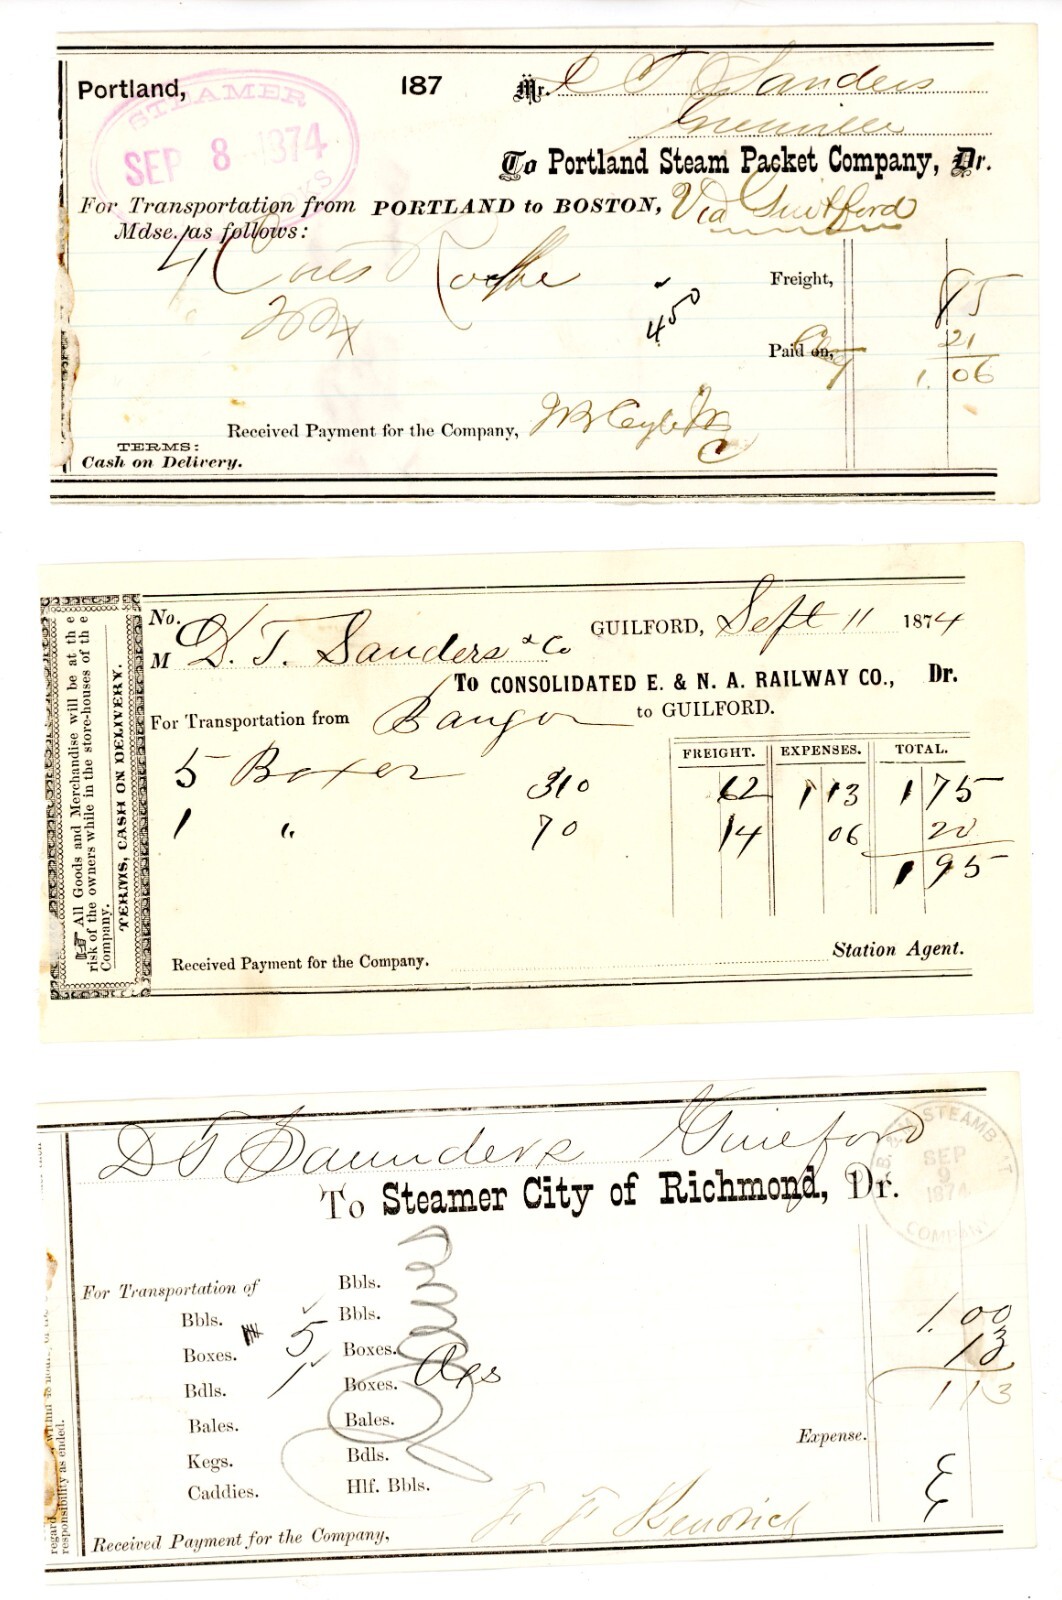 Portland, 187 Mr. D T Sanders
STEAMER
SEP 8 1874
Greenville
To Portland Steam Packet Company, Dr.
For Transportation from PORTLAND to BOSTON, Via Guilford
Mdse. as follows:
4
Freight, 85
450
Paid on, 21
1.06
Received Payment for the Company,
TERMS:
Cash on Delivery.
All Goods and Merchandise will be at the
risk of the owners while in the store-houses of the
Company.
TERMS, CASH ON DELIVERY.
No.
GUILFORD, Sept 11 1874
M D. T. Sanders & Co
To CONSOLIDATED E. & N. A. RAILWAY CO., Dr.
For Transportation from Bangor to GUILFORD.
FREIGHT. EXPENSES. TOTAL.
5 Boxes 310 62 1 13 1 75
1 " 70 14 06 20
1 95
Received Payment for the Company.
Station Agent.
D T Saunders Guilford
SEP
9
1874
COMPANY
To Steamer City of Richmond, Dr.
For Transportation of
Bbls.
Bbls. Bbls.
Boxes. 5 Boxes. 1.00
Bdls. 1 Boxes. Axs 13
113
Bales. Bales.
Expense.
Kegs. Bdls.
Caddies. Hlf. Bbls.
responsibility as ended.
Received Payment for the Company, F F Kendrick